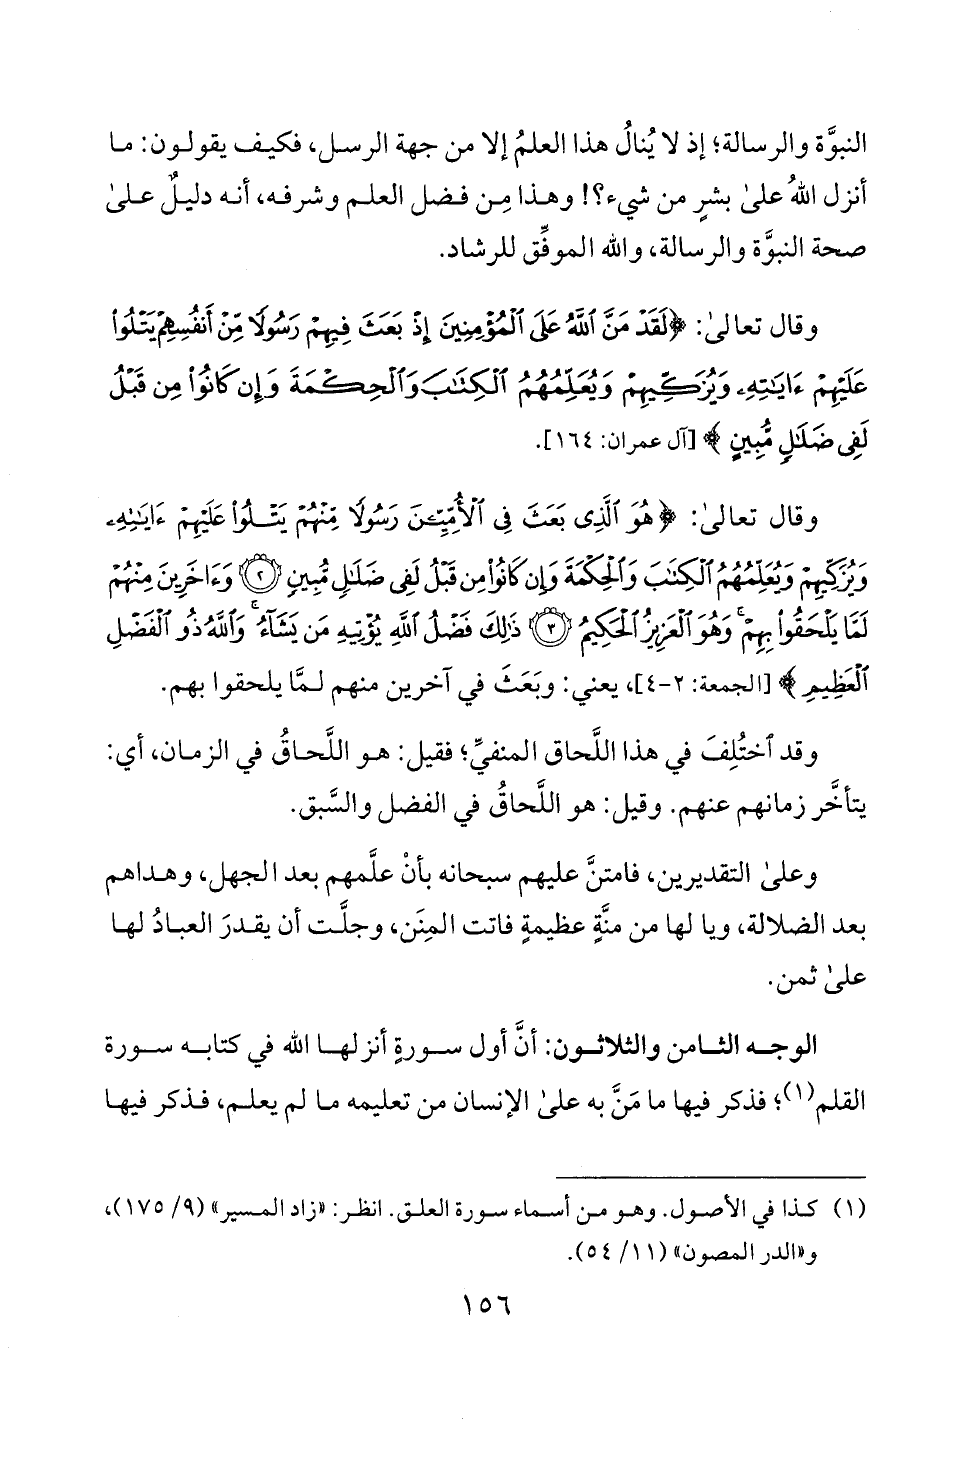 النبوَّة والرسالة؛ إذ لا يُنالُ هذا العلمُ إلا من جهة الرسل، فكيف يقولون: ما
أنزل اللهُ علىٰ بشرٍ من شيء؟! وهذا مِن فضل العلم وشرفه، أنه دليلٌ علىٰ
صحة النبوَّة والرسالة، والله الموفِّق للرشاد.
وقال تعالىٰ: ﴿لَقَدْ مَنَّ ٱللَّهُ عَلَى ٱلْمُؤْمِنِينَ إِذْ بَعَثَ فِيهِمْ رَسُولًا مِّنْ أَنفُسِهِمْ يَتْلُوا۟
عَلَيْهِمْ ءَايَٰتِهِۦ وَيُزَكِّيهِمْ وَيُعَلِّمُهُمُ ٱلْكِتَٰبَ وَٱلْحِكْمَةَ وَإِن كَانُوا۟ مِن قَبْلُ
لَفِى ضَلَٰلٍ مُّبِينٍ﴾ [آل عمران: ١٦٤].
وقال تعالىٰ: ﴿هُوَ ٱلَّذِى بَعَثَ فِى ٱلْأُمِّيِّـۧنَ رَسُولًا مِّنْهُمْ يَتْلُوا۟ عَلَيْهِمْ ءَايَٰتِهِۦ
وَيُزَكِّيهِمْ وَيُعَلِّمُهُمُ ٱلْكِتَٰبَ وَٱلْحِكْمَةَ وَإِن كَانُوا۟ مِن قَبْلُ لَفِى ضَلَٰلٍ مُّبِينٍ ٢ وَءَاخَرِينَ مِنْهُمْ
لَمَّا يَلْحَقُوا۟ بِهِمْ ۚ وَهُوَ ٱلْعَزِيزُ ٱلْحَكِيمُ ٣ ذَٰلِكَ فَضْلُ ٱللَّهِ يُؤْتِيهِ مَن يَشَآءُ ۚ وَٱللَّهُ ذُو ٱلْفَضْلِ
ٱلْعَظِيمِ﴾ [الجمعة: ٢-٤]، يعني: وبَعَثَ في آخرين منهم لمَّا يلحقوا بهم.
وقد ٱختُلِفَ في هذا اللَّحاق المنفيِّ؛ فقيل: هو اللَّحاقُ في الزمان، أي:
يتأخَّر زمانهم عنهم. وقيل: هو اللَّحاقُ في الفضل والسَّبق.
وعلىٰ التقديرين، فامتنَّ عليهم سبحانه بأنْ علَّمهم بعد الجهل، وهداهم
بعد الضلالة، ويا لها من منَّةٍ عظيمةٍ فاتت المِنَن، وجلَّت أن يقدرَ العبادُ لها
علىٰ ثمن.
الوجه الثامن والثلاثون: أنَّ أول سورةٍ أنزلها الله في كتابه سورة
القلم(١)؛ فذكر فيها ما مَنَّ به علىٰ الإنسان من تعليمه ما لم يعلم، فذكر فيها
(١) كذا في الأصول. وهو من أسماء سورة العلق. انظر: «زاد المسير» (٩/ ١٧٥)،
و«الدر المصون» (١١/ ٥٤).
١٥٦